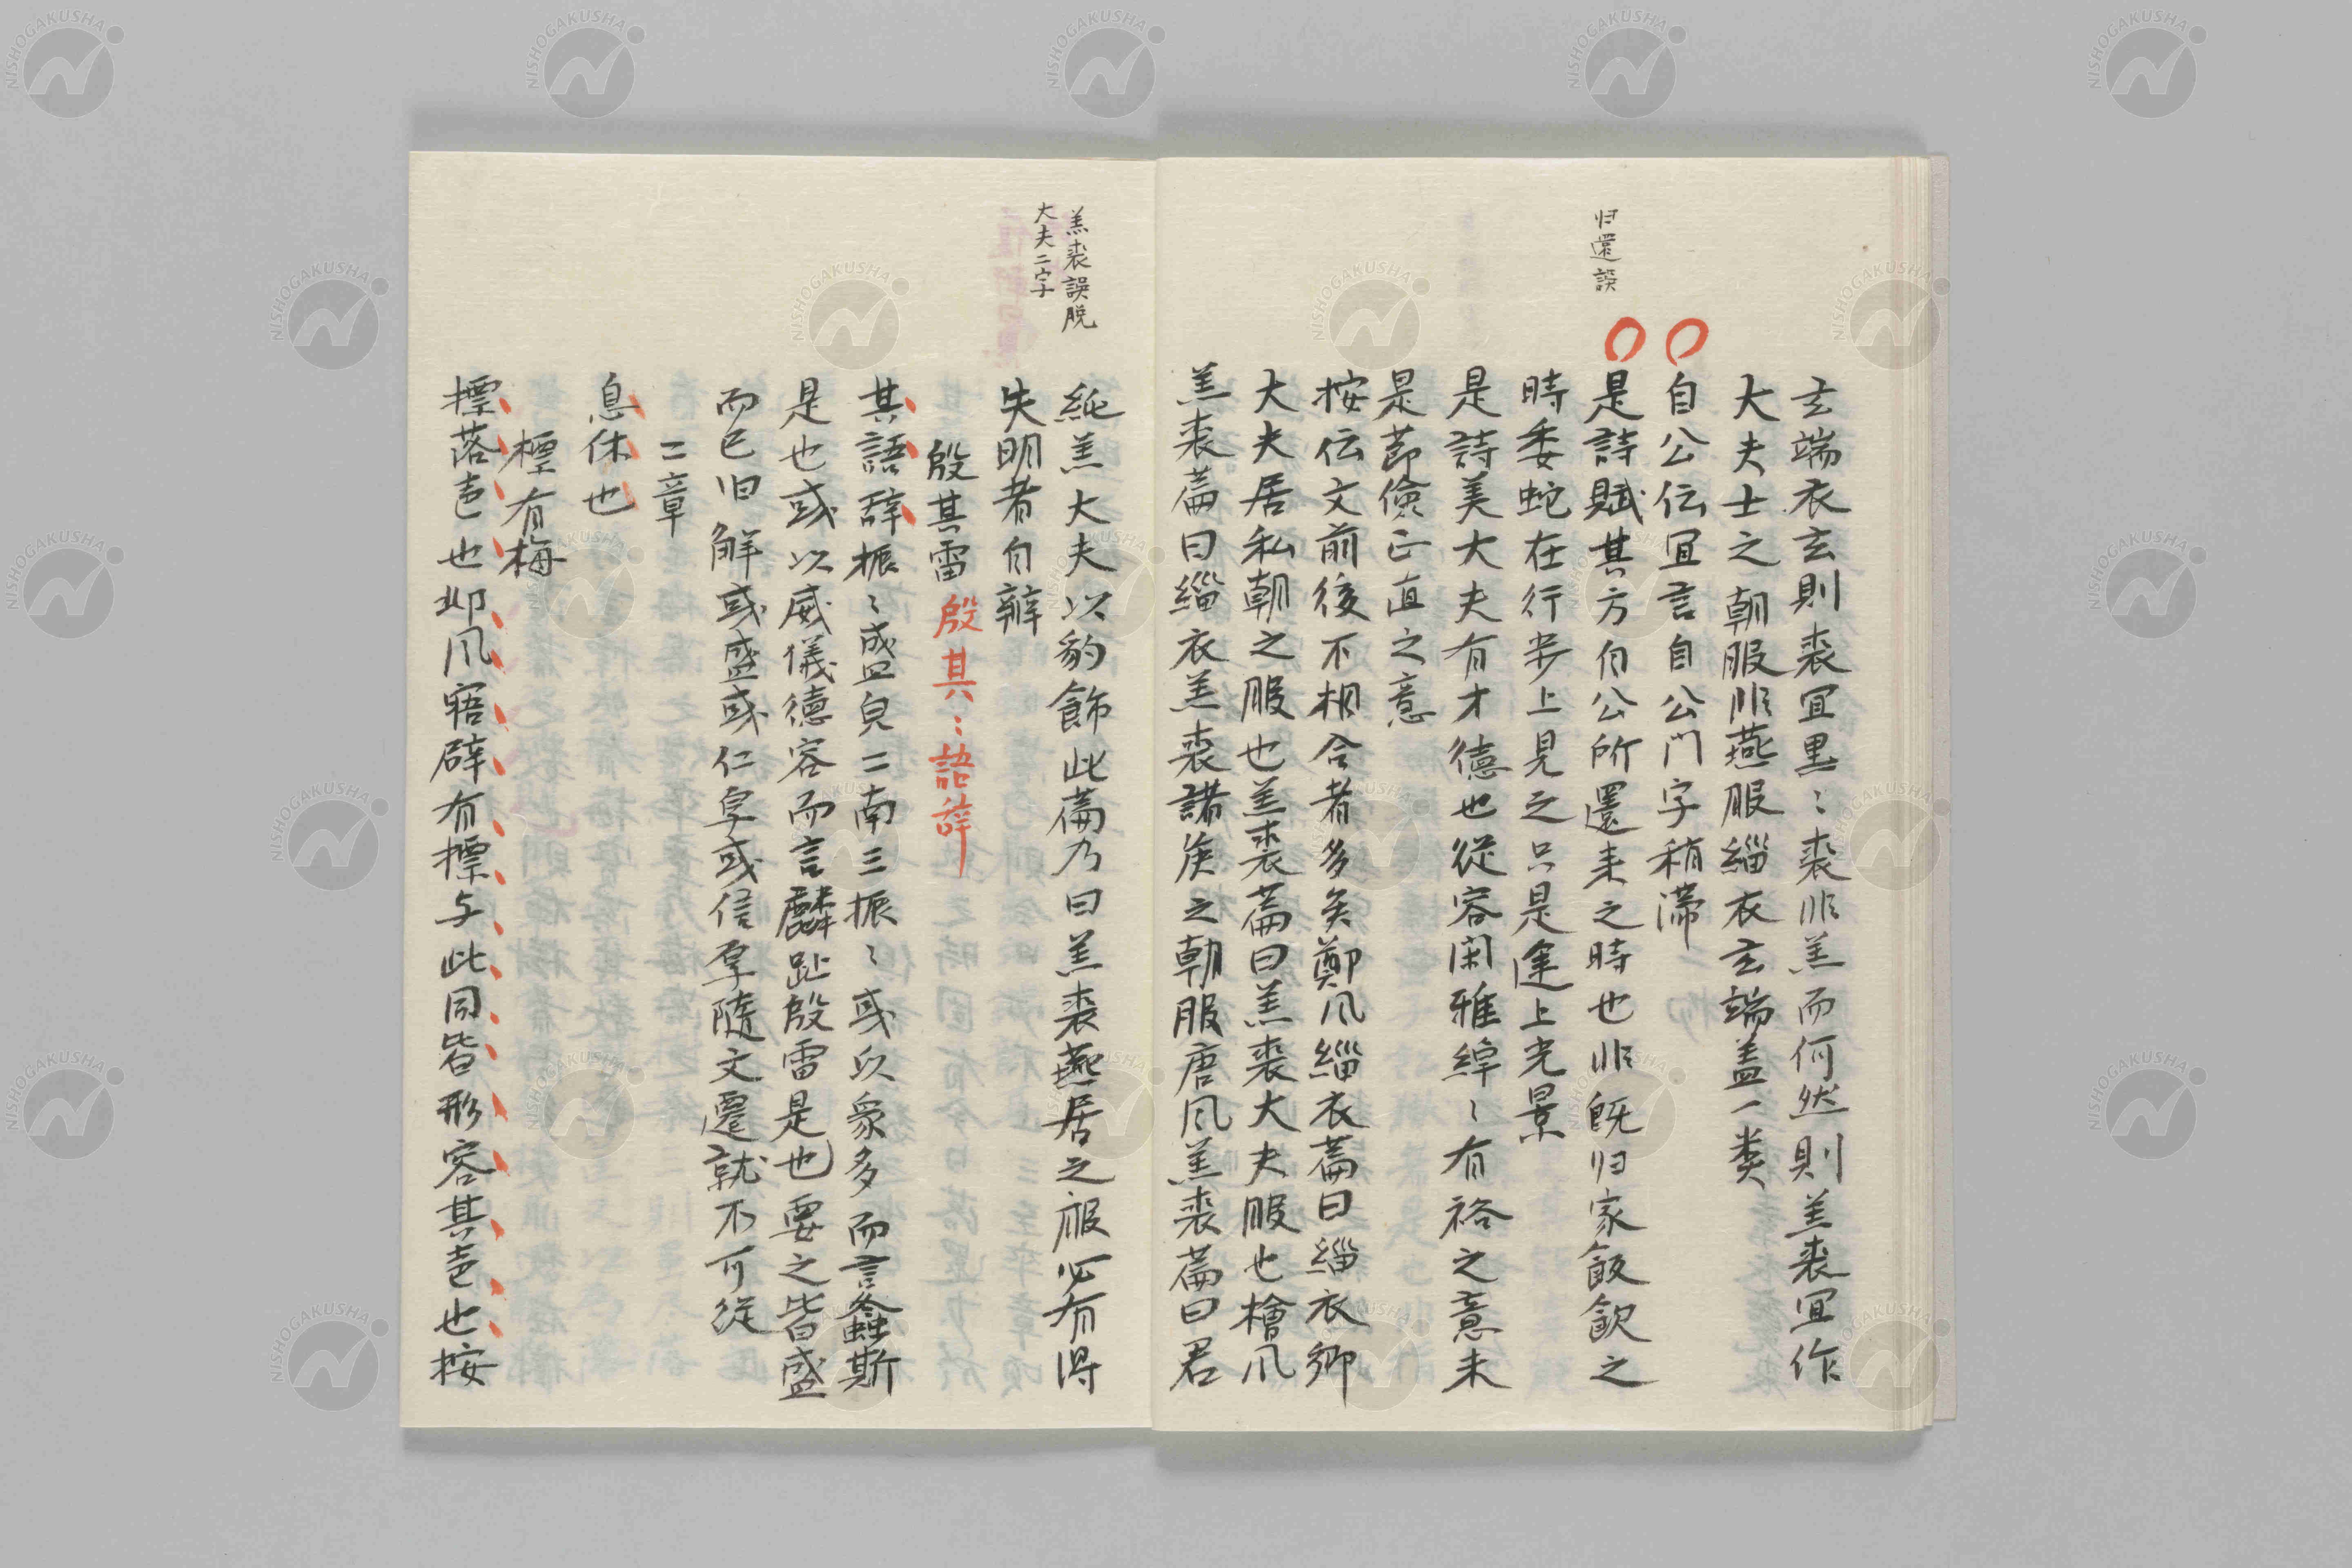 玄端衣玄則裘宜黒〻裘非羔而何然則羔裘宜作
大夫士之朝服非燕服緇衣玄端盖一类
自公伝宜言自公門字稍滞
归還誤
是詩賦其方自公所還来之時也非既归家飯飲之
時委蛇在行步上見之只是途上光景
是詩美大夫有才徳也從容閑雅綽〻有裕之意未
是節儉正直之意
按伝文前後不相合者多矣鄭风緇衣萹曰緇衣卿
大夫居私朝之服也羔裘萹曰羔裘大夫服也檜风
羔裘萹曰緇衣羔裘諸矦之朝服唐风羔裘萹曰君
羔裘誤脱
大夫二字
純羔大夫以豹飾此萹乃曰羔裘燕居之服必有得
失明者自辨
殷其雷 殷其〻語辞
其語辞振〻盛皃二南三振〻或以衆多而言螽斯
是也或以威儀徳容而言麟趾殷雷是也要之皆盛
而已旧解或盛或仁厚或信厚隨文遷就不可従
二章
息休也
標有梅
摽落皃也邶风寤辟有摽与此同皆形容其皃也按